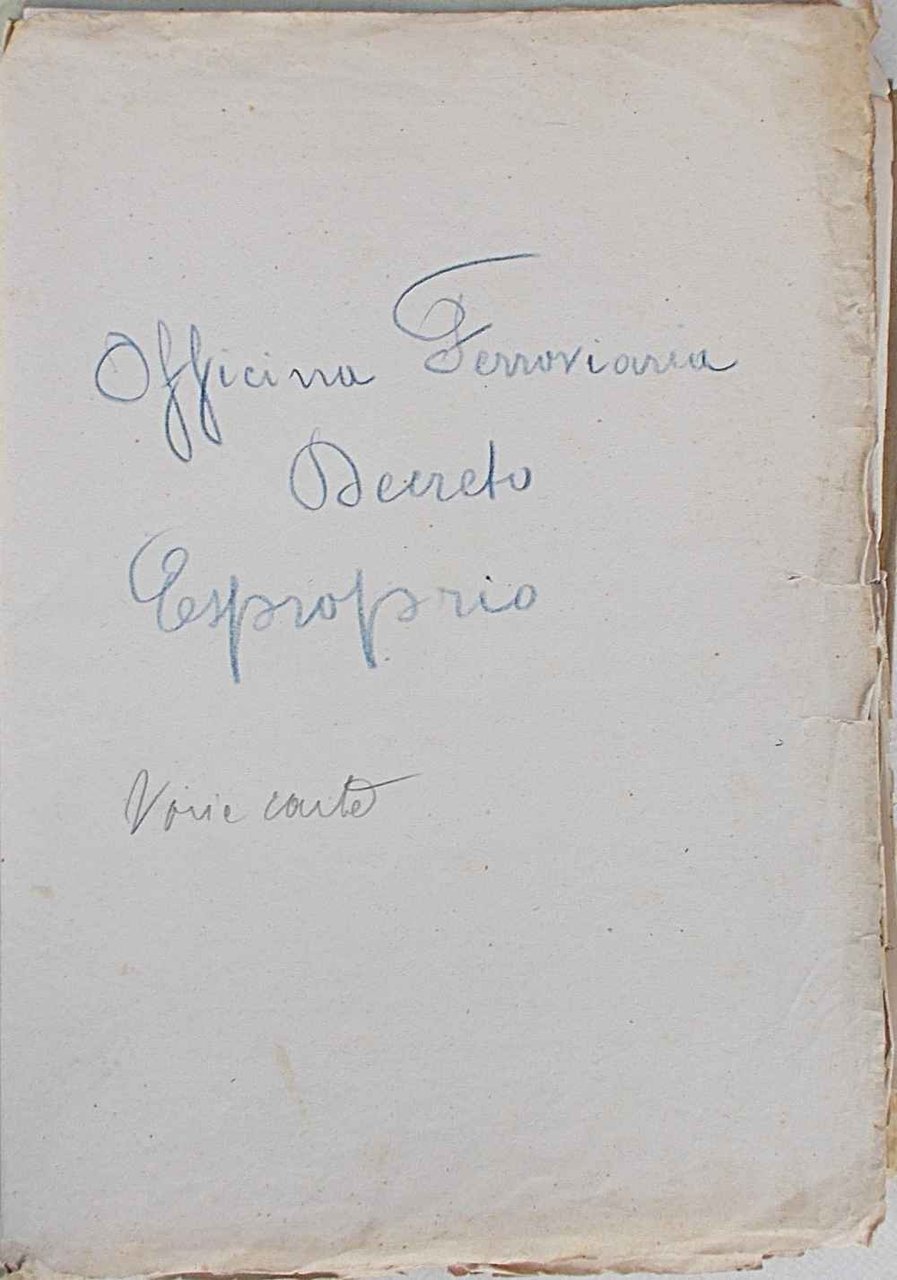 Officina Ferroviaria
Decreto
Esproprio
Varie carte